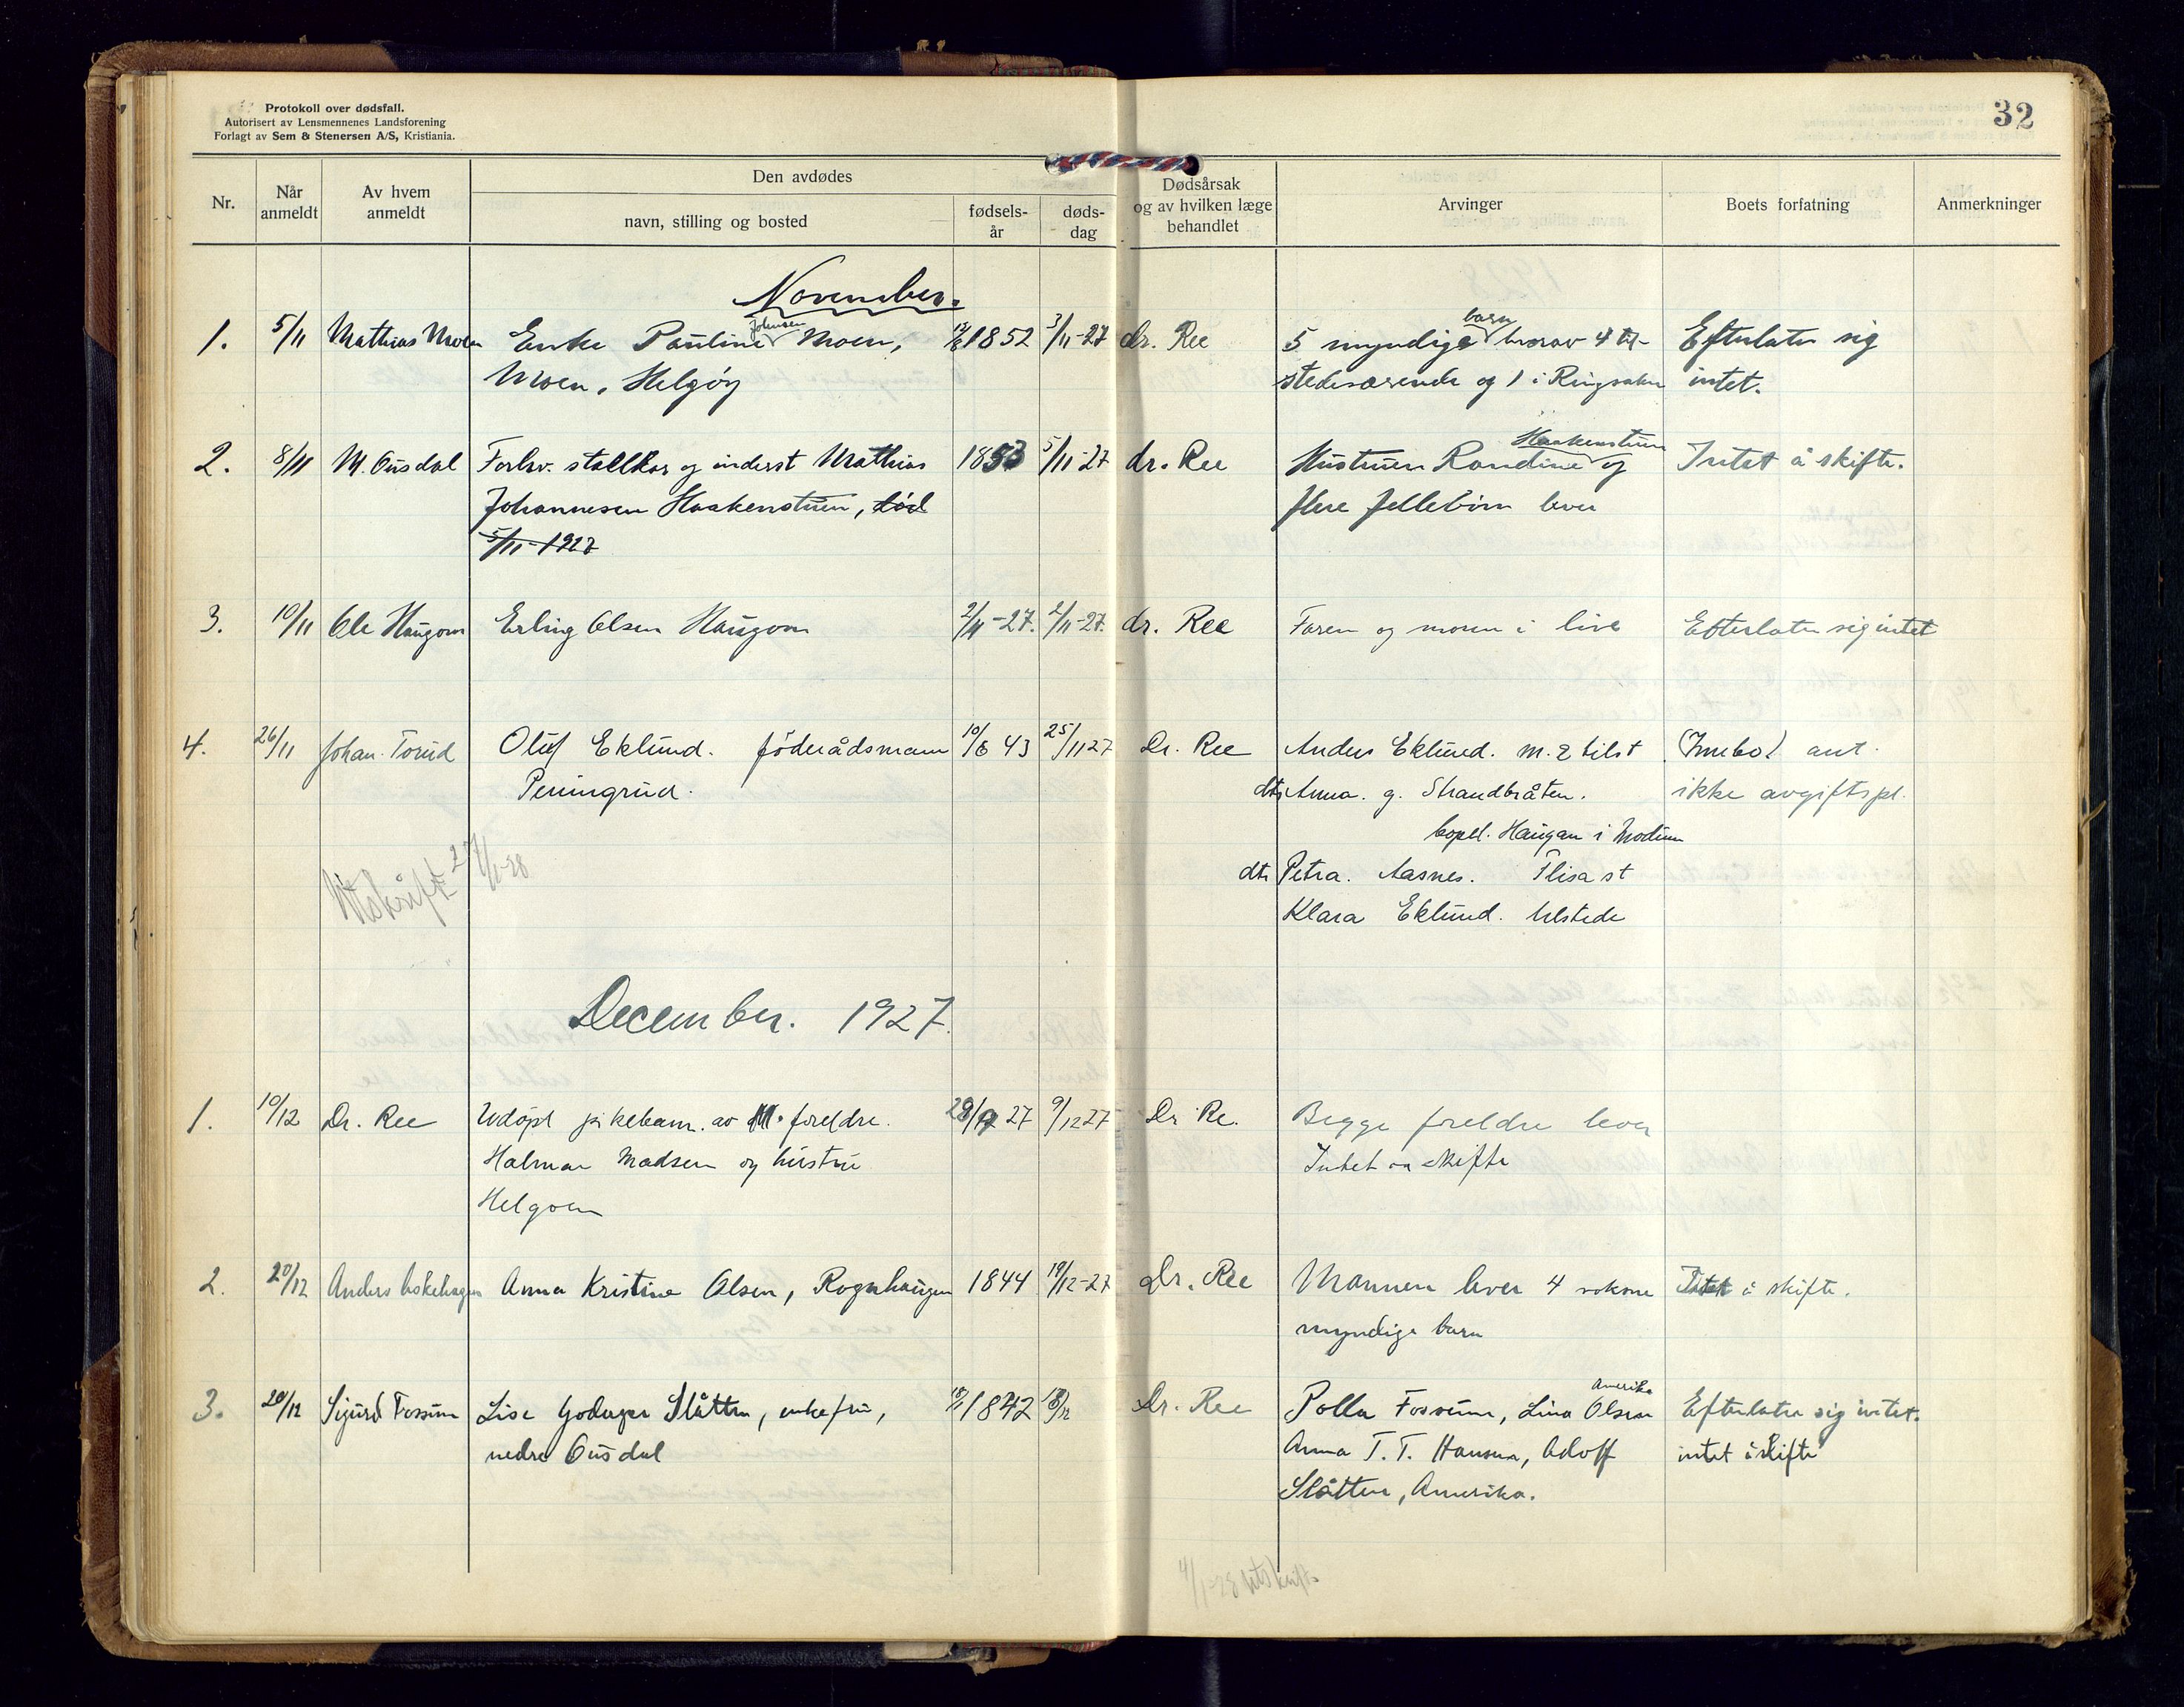 Protokoll over dødsfall.
Autorisert av Lensmennenes Landsforening
Forlagt av Sem & Stenersen A/S, Kristiania.
32
Nr.
Når anmeldt
Av hvem anmeldt
Den avdødes
navn, stilling og bosted
fødsels-år
døds-dag
Dødsårsak og av hvilken læge behandlet
Arvinger
Boets forfatning
Anmerkninger
November.
1. 5/11 Mathias Moen Enke Pauline Johnsen Moen, 1852 3/11-27 dr. Ree 5 myndige barn hvorav 4 til- Efterlater sig
Moen, Helgøy stedeværende og 1 i Ringsaker intet.
2. 8/11 M. Ousdal Forhv. stallkar og inderst Mathias 1853 5/11-27 dr. Ree Hustruen Randine Haakenstuen og Intet å skifte.
Johannesen Haakenstuen, død flere fellebørn lever
5/11-1927
3. 10/11 Ole Haugom Erling Olsen Haugom 2/11-27. 2/11-27. dr. Ree Faren og moren i live Efterlater sig intet
4. 26/11 Johan Torud Oluf Eklund. föderådsmann 10/6 43 25/11 27 Dr. Ree Anders Eklund. m. 2 tilst
Peningrud. dtr Anna. g. Strandbråten. ikke avgiftspl.
bopel. Haugan i Modum
Utskrift 27/1-28
dtr Petra. Aasnes. Flisa st
Klara Eklund. tilstede
December. 1927.
1. 10/12 Dr. Ree Udöpt pikebarn. av foreldre. 27 9/12 27 Dr Re. Begge foreldre lever
Halmar Madsen og hustru Intet aa skifte
Helgoen
2. 20/12 Anders Eskehagen Anna Kristine Olsen, Rognhaugen 1844 19/12-27 Dr. Ree Mannen lever 4 voksne Intet å skifte.
myndige barn
3. 20/12 Sigurd Fossum Lise Godager Slåtten, enkefru, 1842 18/12 Dr. Ree Polla Fossum, Lina Olsen Amerika Efterlater sig intet.
nedre Ousdal Anna T. T. Hansen, Adolf intet å skifte
Slåtten, Amerika.
4/1-28 Utskrift.